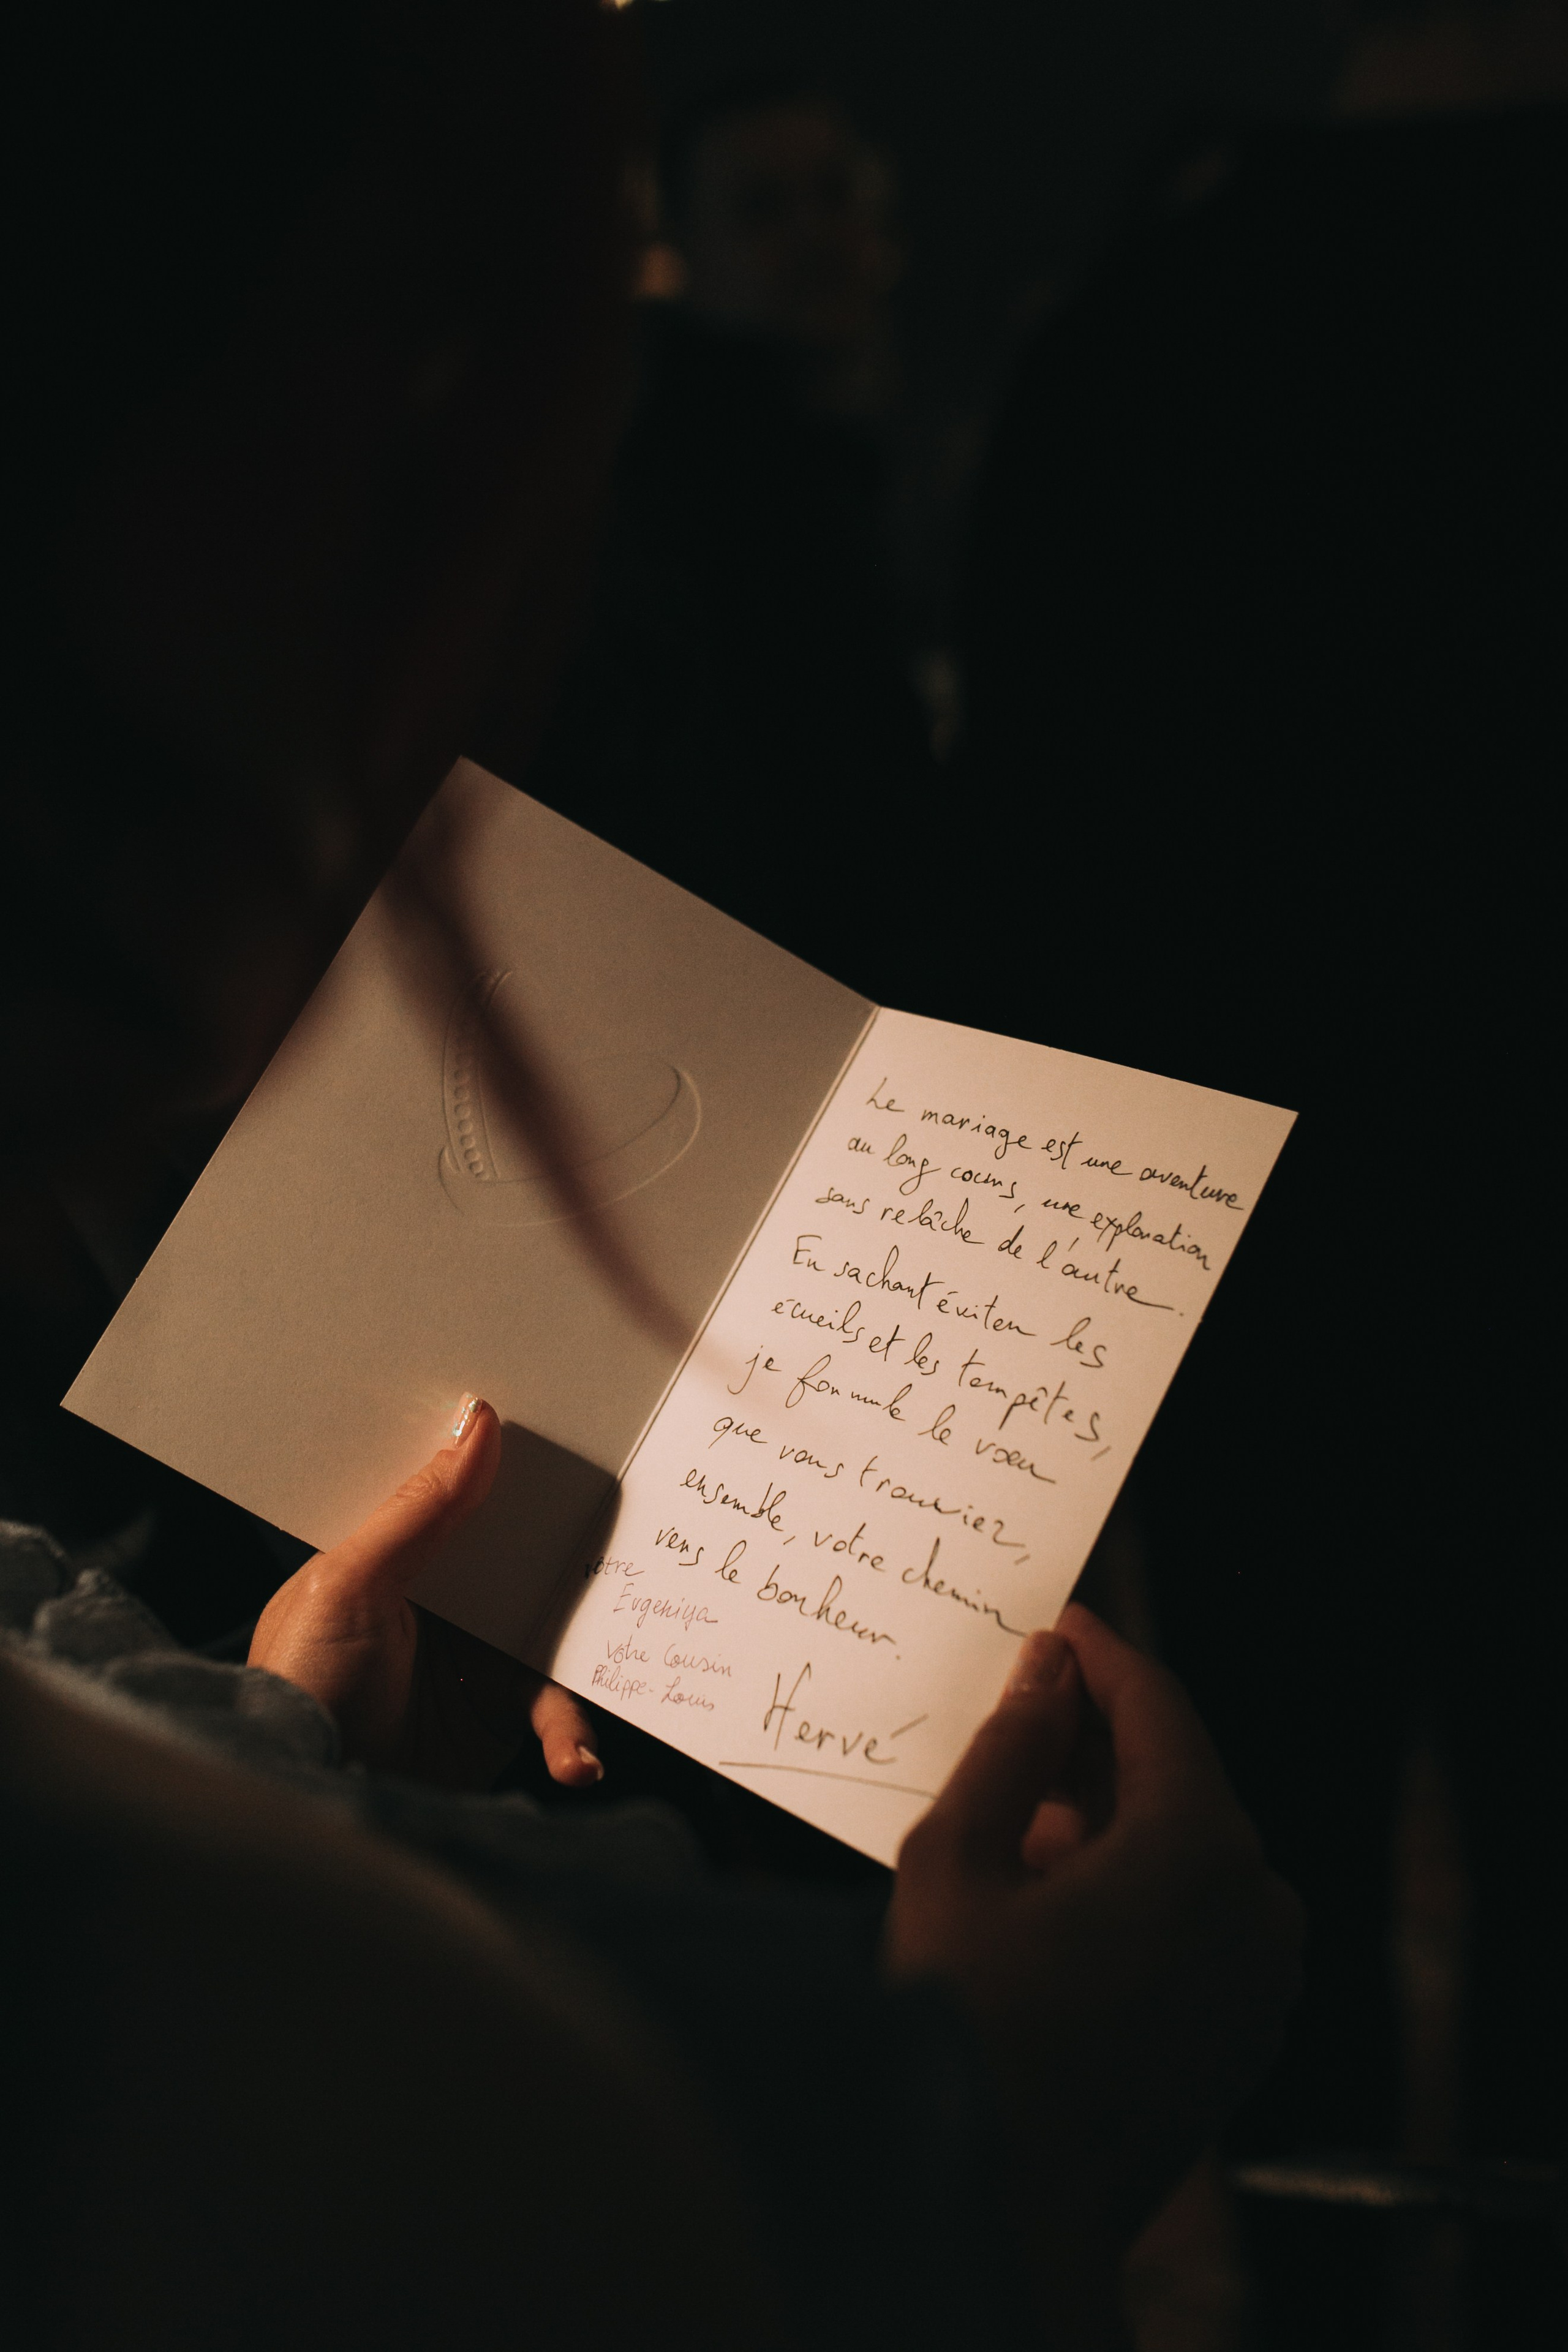 Le mariage est une aventure
au long cours, une exploration
sans relâche de l'autre.
En sachant éviter les
écueils et les tempêtes,
je formule le vœu
que vous trouviez,
ensemble, votre chemin
vers le bonheur.
Vôtre
Evgeniya
Votre Cousin
Philippe-Louis
Hervé